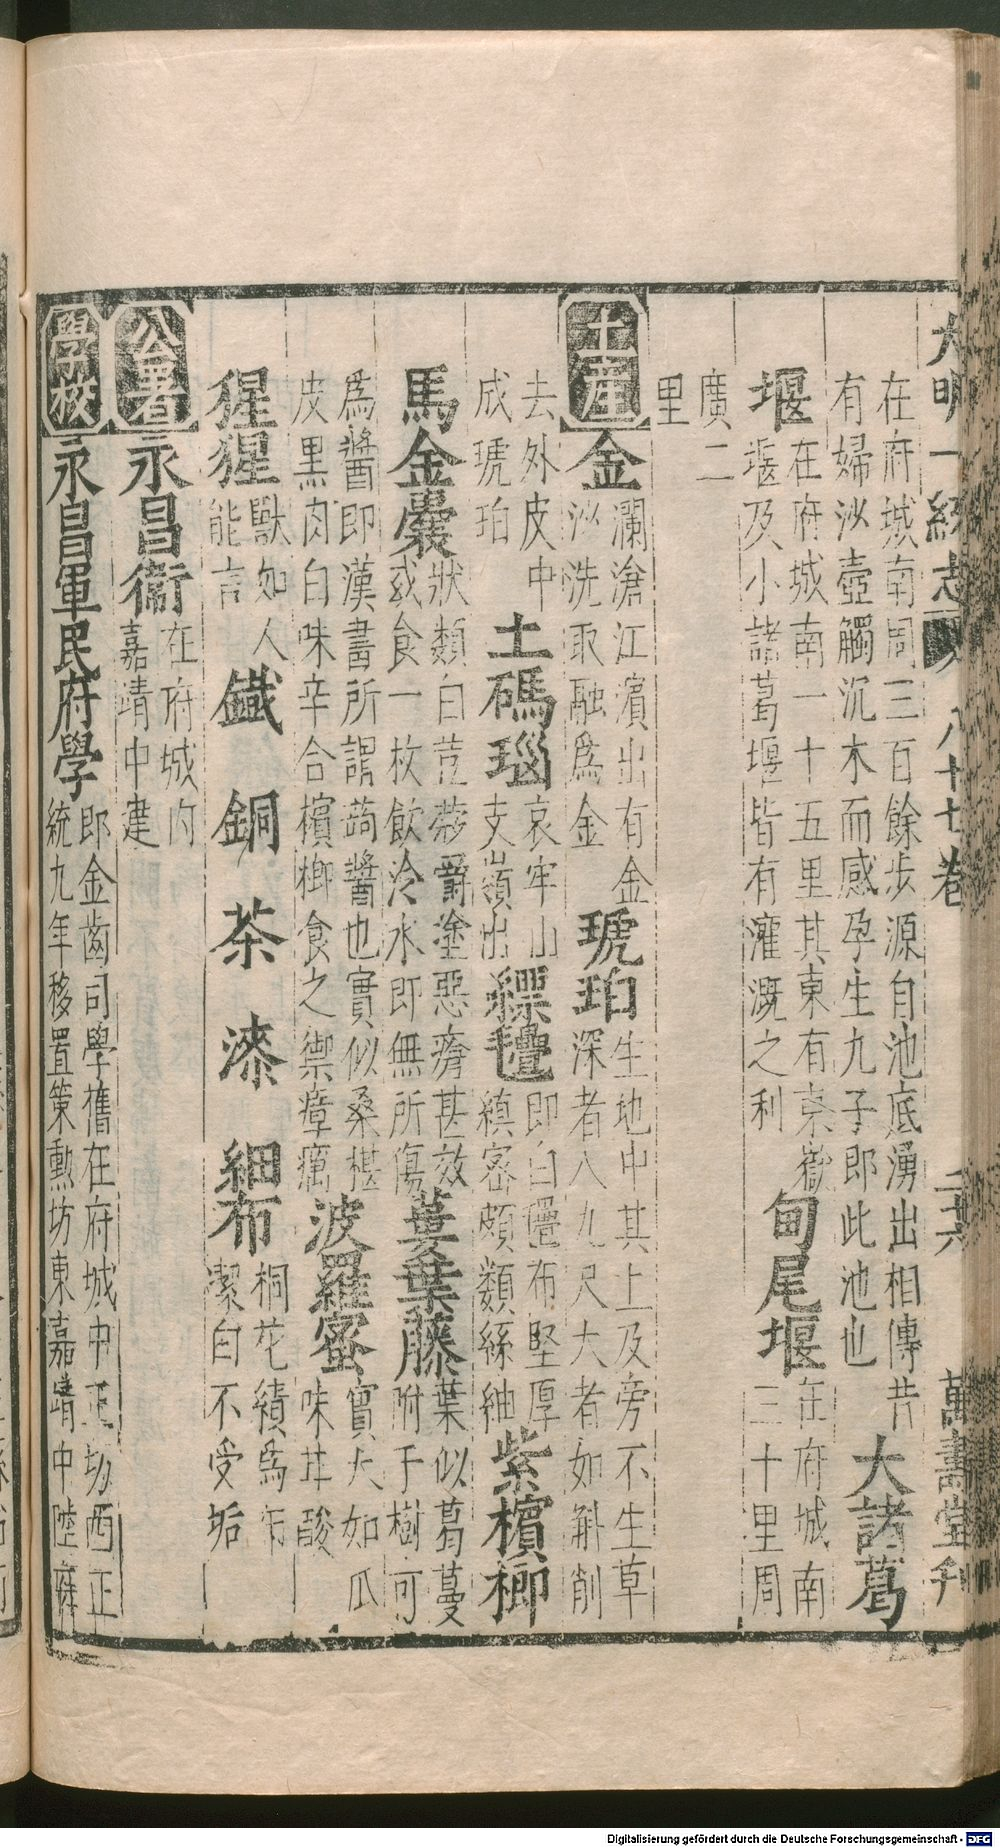 大明一統志 八十七卷 二十六 萬壽堂刊
在府城南周三百餘步源自池底湧出相傳昔
有婦沙壺觸沉木而感孕生九子即此池也
大諸葛
堰
在府城南一十五里其東有東嶽
堰及小諸葛堰皆有灌溉之利
甸尾堰
在府城南
三十里周
廣二
里
土產
金
瀾滄江濱出有金
沙洗取融爲金
琥珀
生地中其上及旁不生草
深者八九尺大者如斛削
去外皮中
成琥珀
土碼瑙
哀牢山
支嶺出
縹氎
即白㲲布堅厚
縝密頗類絲紬
紫檳榔
馬金囊
狀類白荳蔻嚼塗惡瘡甚效
或食一枚飲冷水即無所傷
蔞葉藤
葉似葛蔓
附于樹可
爲醬即漢書所謂蒟醬也實似桑椹
皮黑肉白味辛合檳榔食之禦瘴癘
波羅蜜
實大如瓜
味甘酸
猩猩
獸如人
能言
鐵
銅
茶
漆
細布
桐花績爲布
潔白不受垢
公署
永昌衞
在府城内
嘉靖中建
學校
永昌軍民府學
即金齒司學舊在府城中正坊西正
統九年移置策勳坊東嘉靖中陞府
Digitalisierung gefördert durch die Deutsche Forschungsgemeinschaft - DFG